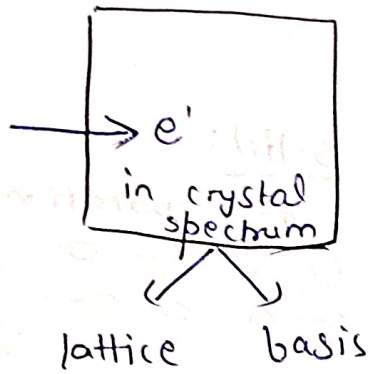 e'
in crystal
spectrum
lattice basis